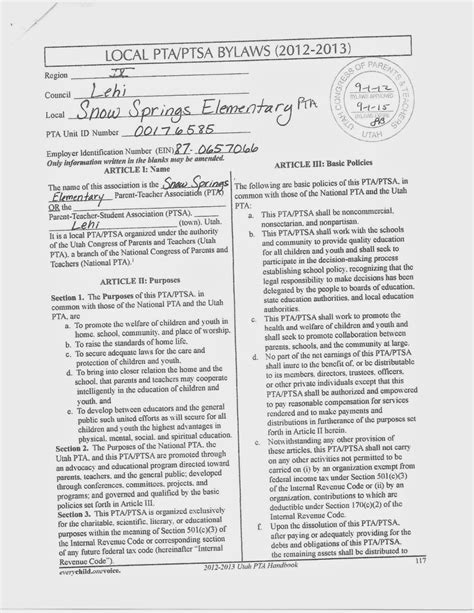 LOCAL PTA/PTSA BYLAWS (2012-2013)
Region IX
Council Lehi
Local Snow Springs Elementary PTA
PTA Unit ID Number 00176585
Employer Identification Number (EIN) 87-0657066
Only information written in the blanks may be amended.
UTAH CONGRESS OF PARENTS & TEACHERS
9-1-12
BYLAWS APPROVED
9-1-15
UTAH
ARTICLE I: Name
The name of this association is the Snow Springs
Elementary Parent-Teacher Association (PTA)
OR the
Parent-Teacher-Student Association (PTSA).
Lehi (town), Utah.
It is a local PTA/PTSA organized under the authority
of the Utah Congress of Parents and Teachers (Utah
PTA), a branch of the National Congress of Parents and
Teachers (National PTA).
ARTICLE II: Purposes
Section 1. The Purposes of this PTA/PTSA, in
common with those of the National PTA and the Utah
PTA, are
a. To promote the welfare of children and youth in
home, school, community, and place of worship.
b. To raise the standards of home life,
c. To secure adequate laws for the care and
protection of children and youth.
d. To bring into closer relation the home and the
school, that parents and teachers may cooperate
intelligently in the education of children and
youth, and
e. To develop between educators and the general
public such united efforts as will secure for all
children and youth the highest advantages in
physical, mental, social, and spiritual education.
Section 2. The Purposes of the National PTA, the
Utah PTA, and this PTA/PTSA are promoted through
an advocacy and educational program directed toward
parents, teachers, and the general public; developed
through conferences, committees, projects, and
programs; and governed and qualified by the basic
policies set forth in Article III.
Section 3. This PTA/PTSA is organized exclusively
for the charitable, scientific, literary, or educational
purposes within the meaning of Section 501(c)(3) of
the Internal Revenue Code or corresponding section
of any future federal tax code (hereinafter "Internal
Revenue Code").
ARTICLE III: Basic Policies
The following are basic policies of this PTA/PTSA, in
common with those of the National PTA and the Utah
PTA:
a. This PTA/PTSA shall be noncommercial,
nonsectarian, and nonpartisan.
b. This PTA/PTSA shall work with the schools
and community to provide quality education
for all children and youth and shall seek to
participate in the decision-making process
establishing school policy, recognizing that the
legal responsibility to make decisions has been
delegated by the people to boards of education,
state education authorities, and local education
authorities.
c. This PTA/PTSA shall work to promote the
health and welfare of children and youth and
shall seek to promote collaboration between
parents, schools, and the community at large.
d. No part of the net earnings of this PTA/PTSA
shall inure to the benefit of, or be distributable
to its members, directors, trustees, officers,
or other private individuals except that this
PTA/PTSA shall be authorized and empowered
to pay reasonable compensation for services
rendered and to make payments and
distributions in furtherance of the purposes set
forth in Article II herein.
e. Notwithstanding any other provision of
these articles, this PTA/PTSA shall not carry
on any other activities not permitted to be
carried on (i) by an organization exempt from
federal income tax under Section 501(c)(3)
of the Internal Revenue Code or (ii) by an
organization, contributions to which are
deductible under Section 170(c)(2) of the
Internal Revenue Code.
f. Upon the dissolution of this PTA/PTSA,
after paying or adequately providing for the
debts and obligations of this PTA/PTSA,
the remaining assets shall be distributed to
everychild.onevoice.
2012-2013 Utah PTA Handbook
117